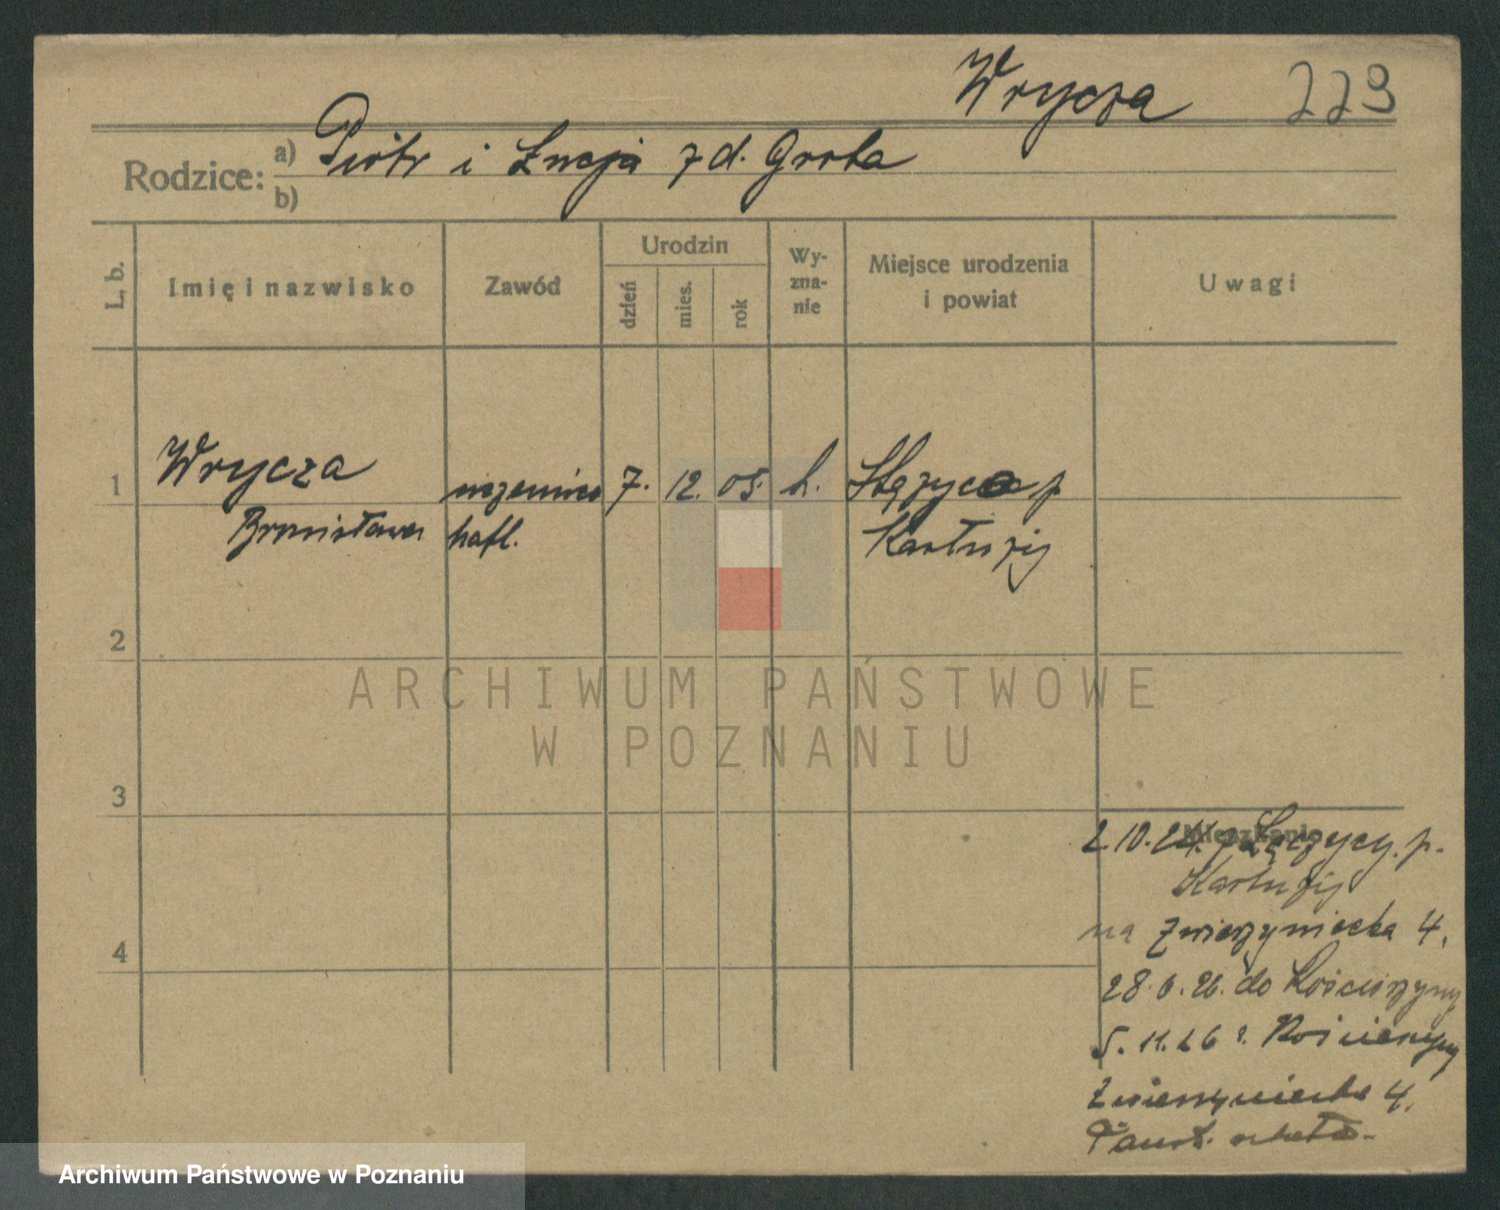 Wrycza 223
Rodzice: a) Piotr i Łucja z d. Grota
b)
L. b.
Imię i nazwisko
Zawód
Urodzin
dzień
mies.
rok
Wy-
zna-
nie
Miejsce urodzenia
i powiat
Uwagi
1 Wrycza uczennica 7. 12. 05. k. Stężyca p
Bronisława hafl. Kartuzy
2
3
Mieszkanie
2.10.24. z p.
Kartuzy
na Zwierzyniecka 4.
4
28.6.26. do Kościerzyny
5.11.26 z Kościerzyny
Zwierzyniecka 4.
Państ. szkoła
ARCHIWUM PAŃSTWOWE
W POZNANIU
Archiwum Państwowe w Poznaniu